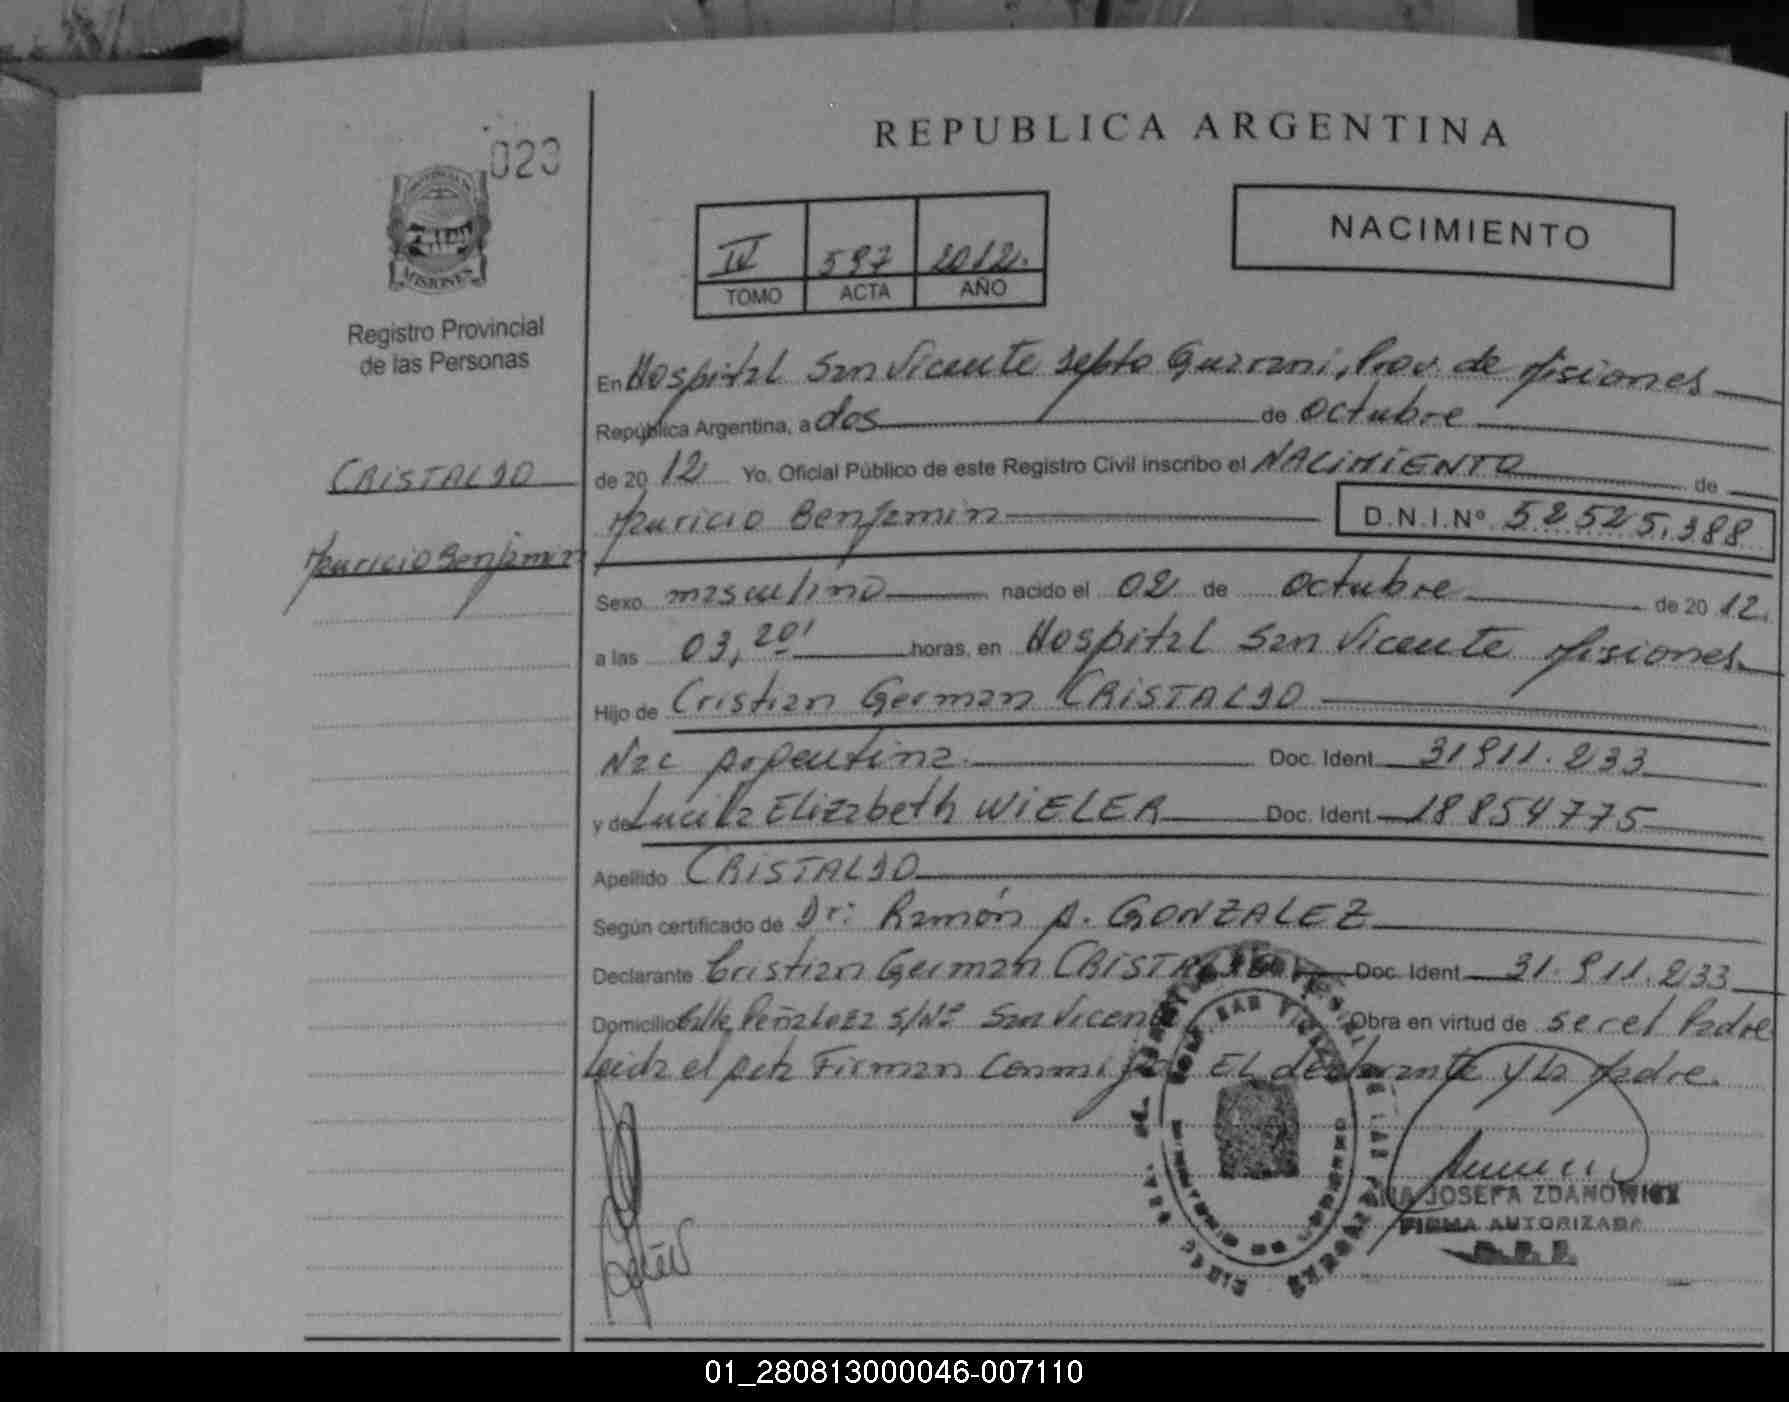 REPUBLICA ARGENTINA
023
MISIONES
Registro Provincial
de las Personas
NACIMIENTO
IV 597 2012.
TOMO ACTA AÑO
En Hospital San Vicente Depto Guarani, Prov. de Misiones
República Argentina, a dos de octubre
de 20 12 Yo, Oficial Público de este Registro Civil inscribo el NACIMIENTO de
CRISTALDO
Mauricio Benjamin D.N.I.Nº 52.525.388
Mauricio Benjamin
Sexo masculino nacido el 02 de octubre de 20 12.
a las 03,20' horas, en Hospital San Vicente Misiones
Hijo de Cristian German CRISTALDO
Nac Argentina. Doc. Ident. 31911.233
y de Lucila Elizabeth WIELER Doc. Ident 18854775
Apellido CRISTALDO
Según certificado de Dr: Ramón A. GONZALEZ
Declarante Cristian German CRISTALDO Doc. Ident 31.911.233
Domicilio Calle Peñaloza S/Nº San Vicente Obra en virtud de ser el Padre
Leida el Acta Firman Conmigo EL declarante y la Madre.
JOSEFA ZDANOWICZ
FIRMA AUTORIZADA
01_280813000046-007110